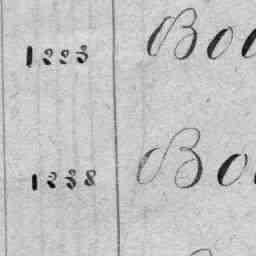 1223 Boo
1238 Bo